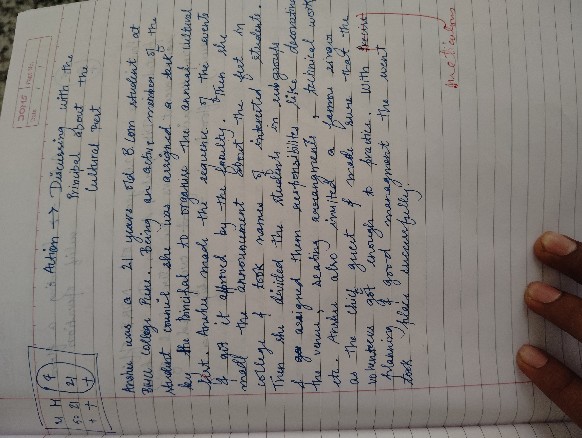 Action → Discussing with the
Principal about the
Cultural Fest
Anshu was a 21 years old B.Com student at
College Pune. Being an active member of the
student council she was assigned a task
by the Principal to organise the annual cultural
fest. made the sequence of the event
& got it approved by the faculty. Then she
made the announcement about the fest in
college & took names of interested students.
Then she divided the students in subgroups
& assigned them responsibilities like decorating
the venue, seating arrangments, technical work
etc. also invited a famous singer
as the chief guest & made sure that the
got enough to practice. With
planning & good managment the event
took place successfully.